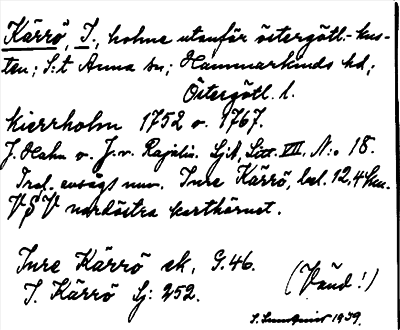 Kärrö, I., holme utanför östergötl.-kus-
ten; S:t Anna sn; Hammarkinds hd;
Östergötl. l.
Kierrholm 1752 o. 1767.
J. Hahn o. J. v. Rajalin. SjA, Litt. VII, N:o 18.
Trol. avsägs nuv. Inre Kärrö, bel. 12,4 km.
VSV nordöstra korthörnet.
Inre Kärrö ek, G.46.
I. Kärrö Sj: 252.
(Vänd!)
1939.